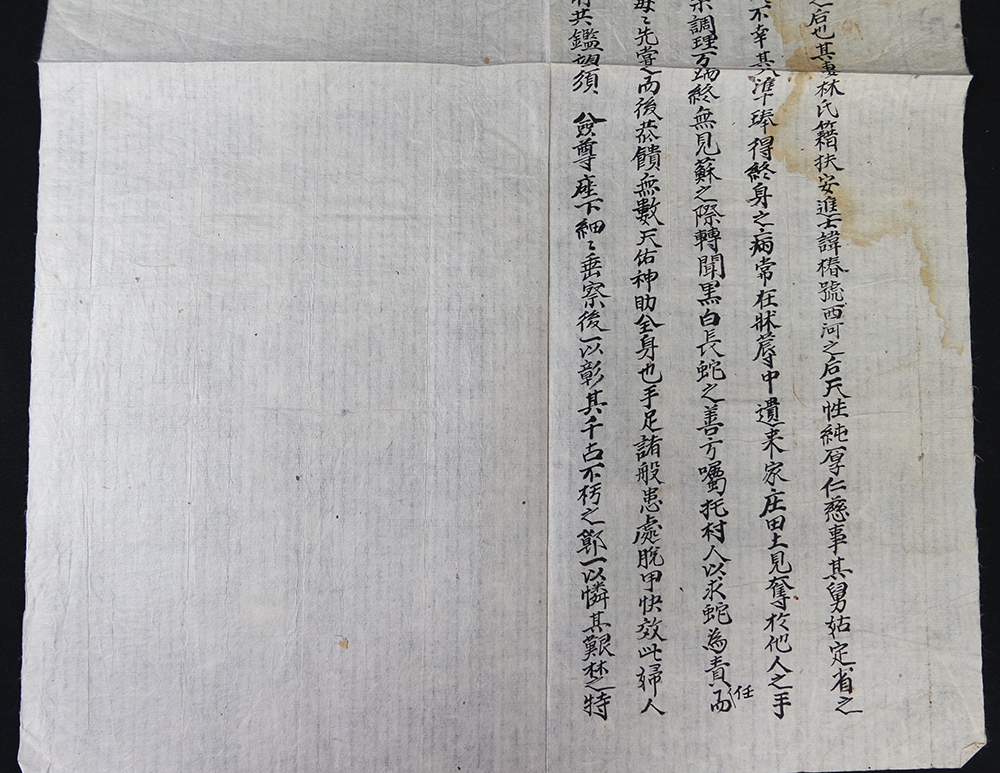 之后也其妻林氏籍扶安進士諱椿號西河之后天性純厚仁慈事其舅姑定省之
不幸其準琫得終身之病常在牀蓐中遺来家庄田土見奪於他人之手
調理万端終無見蘇之際轉聞黑白長蛇之善方囑托村人以求蛇為責任而
每〻先嘗而後恭饋無數天佑神助全身也手足諸般患處脫甲快效此婦人
共鑑 須 僉尊座下細〻垂察後一以彰其千古不朽之鄭一以憐其艱林之特